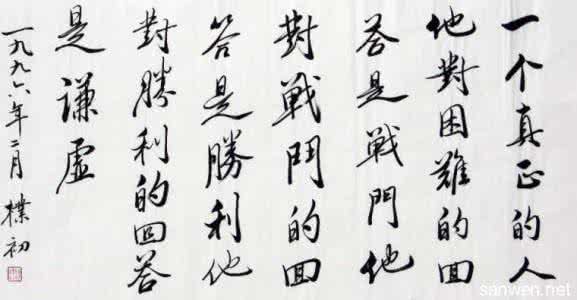 一个真正的人
他對困難的回
答是戰鬥他
對戰鬥的回
答是勝利他
對勝利的回答
是謙虛
一九九六年二月 樸初
sanwen.net